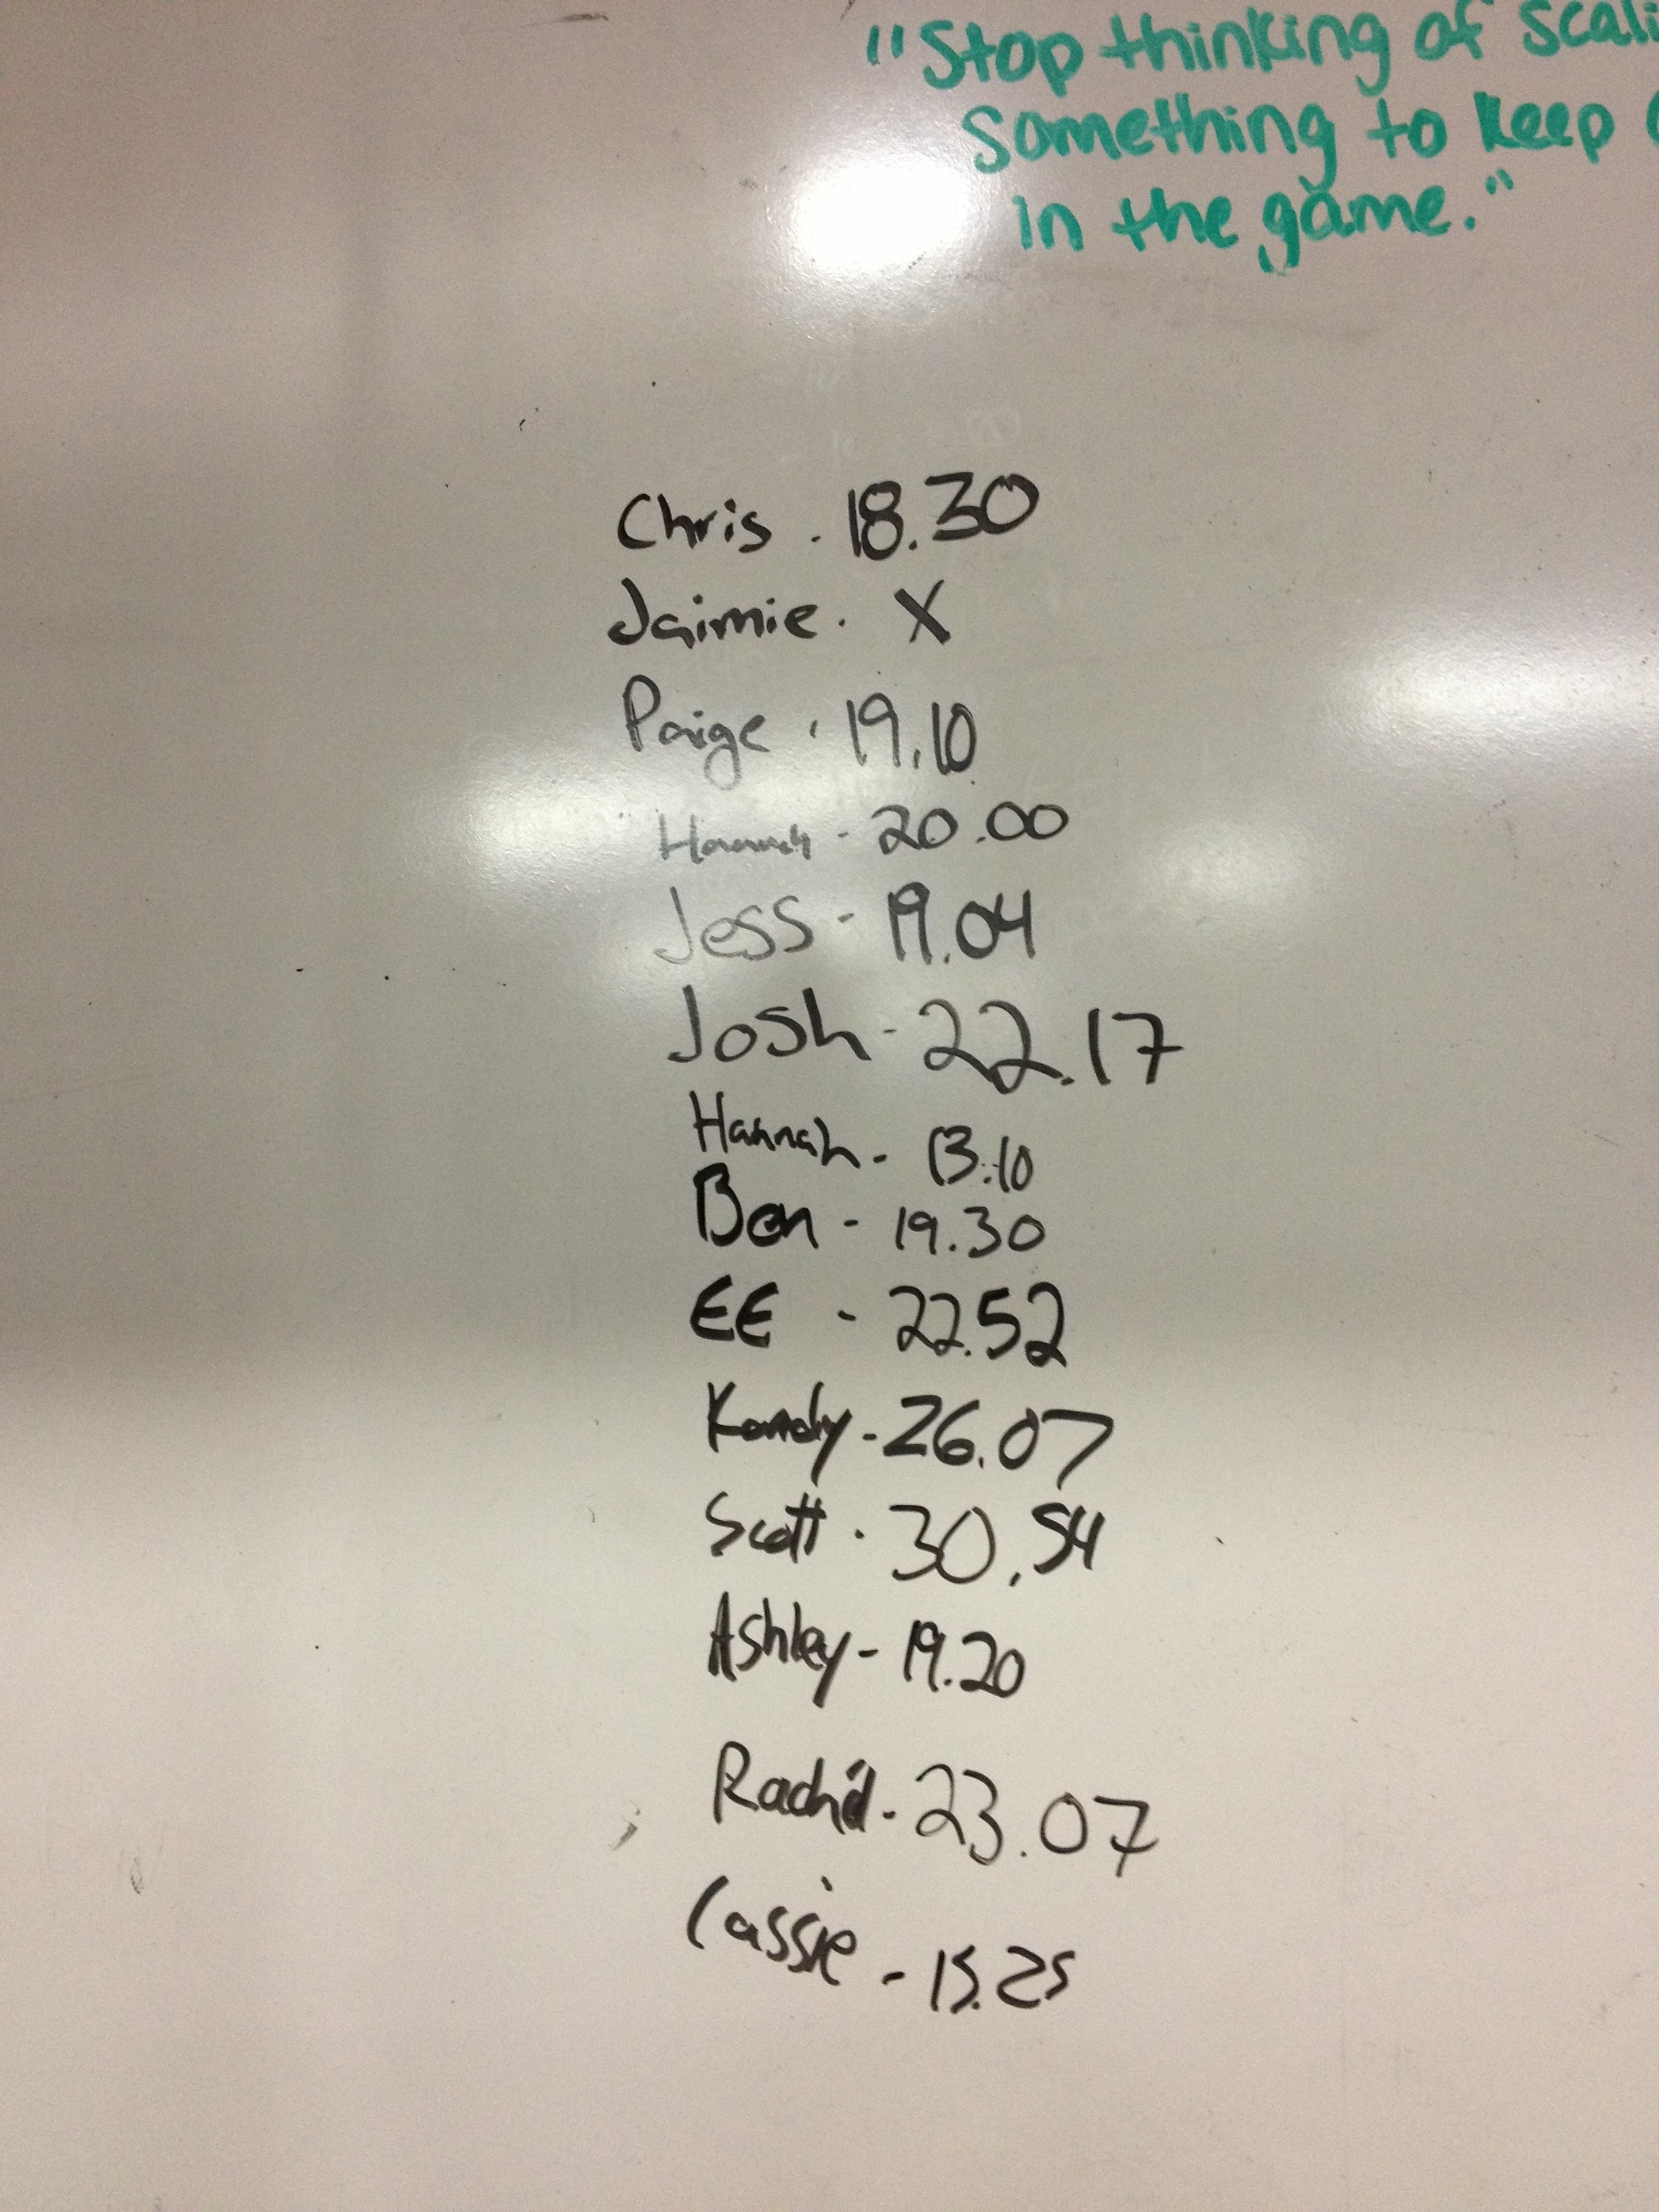 "Stop thinking of scali
Something to keep
in the game."
Chris - 18.30
Jaimie - X
Paige - 19.10
Hannah - 20.00
Jess - 19.04
Josh - 22.17
Hannah - 13.10
Ben - 19.30
EE - 22.52
Kandy - 26.07
Scott - 30.54
Ashley - 19.20
Rachel - 23.07
Cassie - 15.25